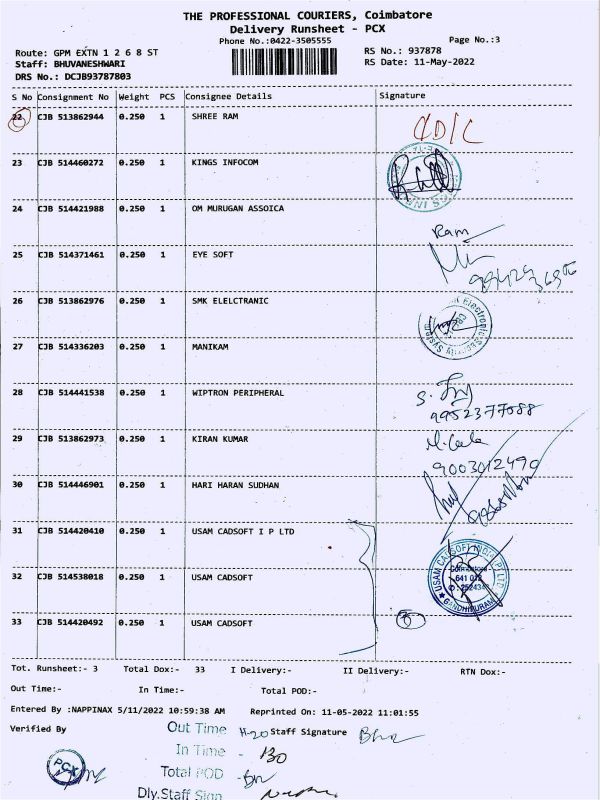 THE PROFESSIONAL COURIERS, Coimbatore
Delivery Runsheet - PCX
Phone No.:0422-3505555
Page No.:3
Route: GPM EXTN 1 2 6 8 ST
RS No.: 937878
Staff: BHUVANESHWARI
RS Date: 11-May-2022
DRS No.: DCJB93787803
S No Consignment No Weight PCS Consignee Details Signature
22 CJB 513862944 0.250 1 SHREE RAM
23 CJB 514460272 0.250 1 KINGS INFOCOM
24 CJB 514421988 0.250 1 OM MURUGAN ASSOICA
Ram
25 CJB 514371461 0.250 1 EYE SOFT
26 CJB 513862976 0.250 1 SMK ELELCTRANIC
Electronic Security System
27 CJB 514336203 0.250 1 MANIKAM
28 CJB 514441538 0.250 1 WIPTRON PERIPHERAL
9952377088
29 CJB 513862973 0.250 1 KIRAN KUMAR
9003012490
30 CJB 514446901 0.250 1 HARI HARAN SUDHAN
31 CJB 514420410 0.250 1 USAM CADSOFT I P LTD
USAM CADSOFT INDIA (P) LTD
Coimbatore
641 012
GANDHIPURAM
32 CJB 514538018 0.250 1 USAM CADSOFT
33 CJB 514420492 0.250 1 USAM CADSOFT
Tot. Runsheet:- 3 Total Dox:- 33 I Delivery:- II Delivery:- RTN Dox:-
Out Time:- In Time:- Total POD:-
Entered By :NAPPINAX 5/11/2022 10:59:38 AM Reprinted On: 11-05-2022 11:01:55
Verified By
Out Time 11-20 Staff Signature
In Time - 130
Total POD -
PCX
Dly.Staff Sign